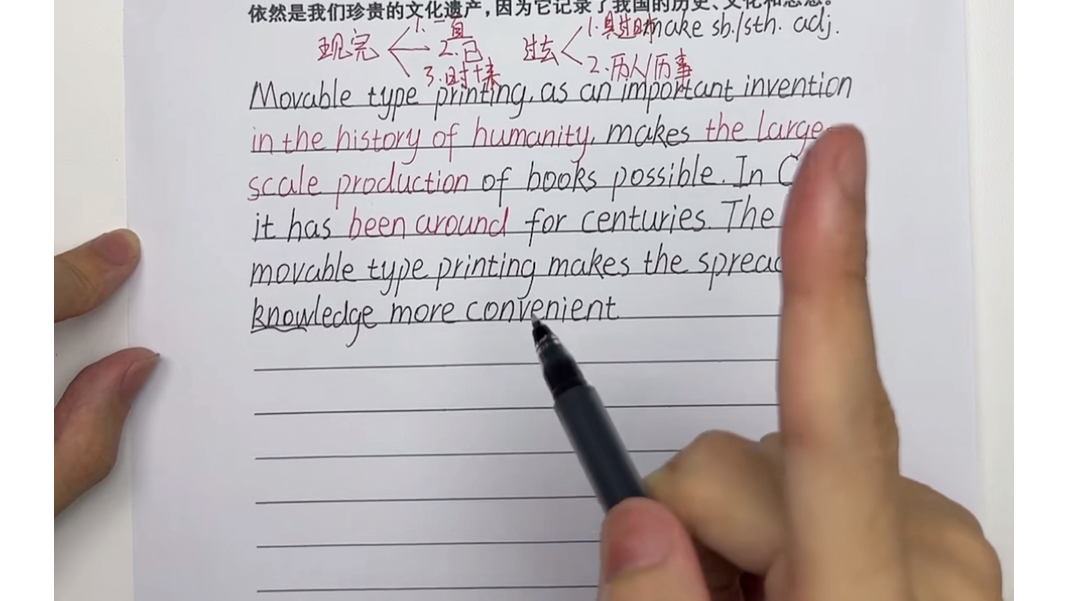 依然是我们珍贵的文化遗产，因为它记录了我国的历史、文化和思想。
1. 一直 1. 具过时 make sb./sth. adj.
现完 2. 已 过去
3. 时+来 2. 历人/历事
Movable type printing, as an important invention
in the history of humanity, makes the large-
scale production of books possible. In
it has been around for centuries. The
movable type printing makes the spread
knowledge more convenient